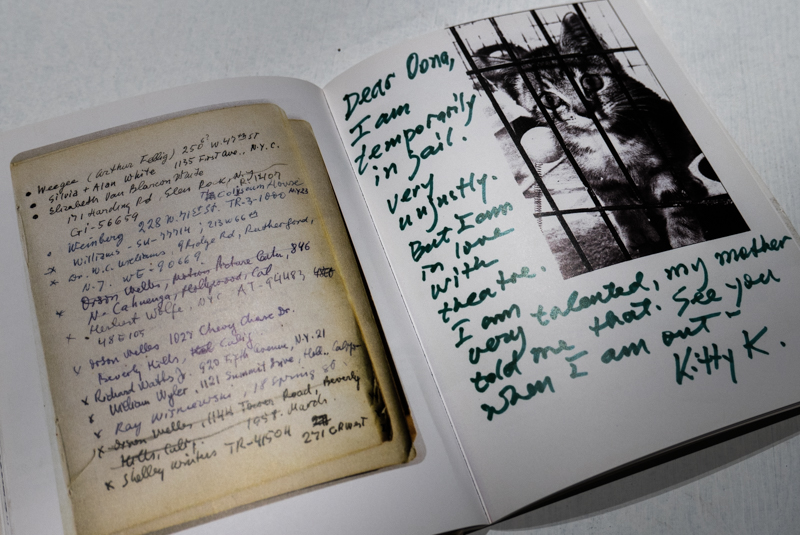 Weegee (Arthur Fellig) 250 W. 47th ST
Silvia + Alan White 1135 First Ave., N.Y.C.
Elizabeth Van Blarcom White
171 Harding Rd, Glen Rock, N.J.
Gi-56659
Weinberg 228 W. 71st ST. TR-3-1000
Williams
Dr. W. C. Williams, 9 Ridge Rd, Rutherford,
N.J. WE:
Orson Welles, Motion Picture Center, 846
N. Cahuenga, Hollywood, Cal
Herbert Wolfe, NYC AT-94483,
48 E 105
Orson Welles 1027 Chevy Chase Dr.
Beverly Hills,
Richard Watts Jr. 920 Fifth Avenue, N.Y. 21
William Wyler, 1121 Summit Drive,
Ray Wisniewski, Spring st
Orson Welles, 1144 Tower Road, Beverly
Hills, Calif.
Shelley Winters TR-41504
Dear Oona,
I am
temporarily
in jail.
very
unjustly.
But I am
in love
with
theatre.
I am talented, my mother
very
told me that. See you
when I am out
Kitty K.